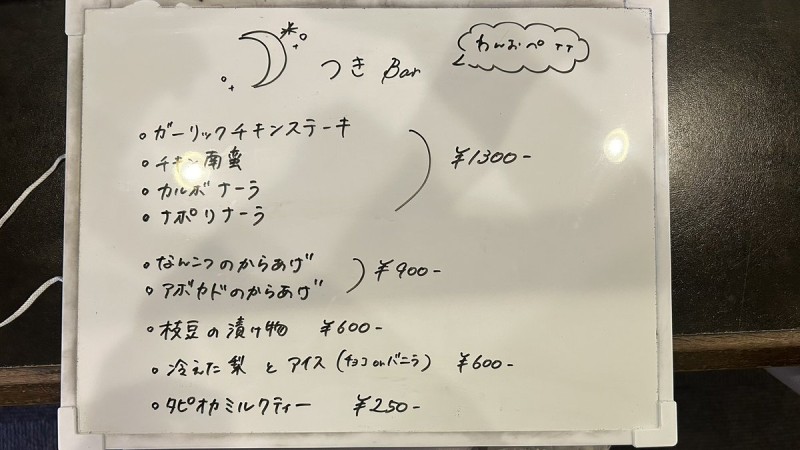 つき Bar
わんおぺ TT
・ガーリックチキンステーキ
・チキン南蛮
・カルボナーラ
・ナポリナーラ
¥1300-
・なんこつのからあげ
・アボカドのからあげ
¥900-
・枝豆の漬け物 ¥600-
・冷えた梨とアイス(チョコorバニラ) ¥600-
・タピオカミルクティー ¥250-